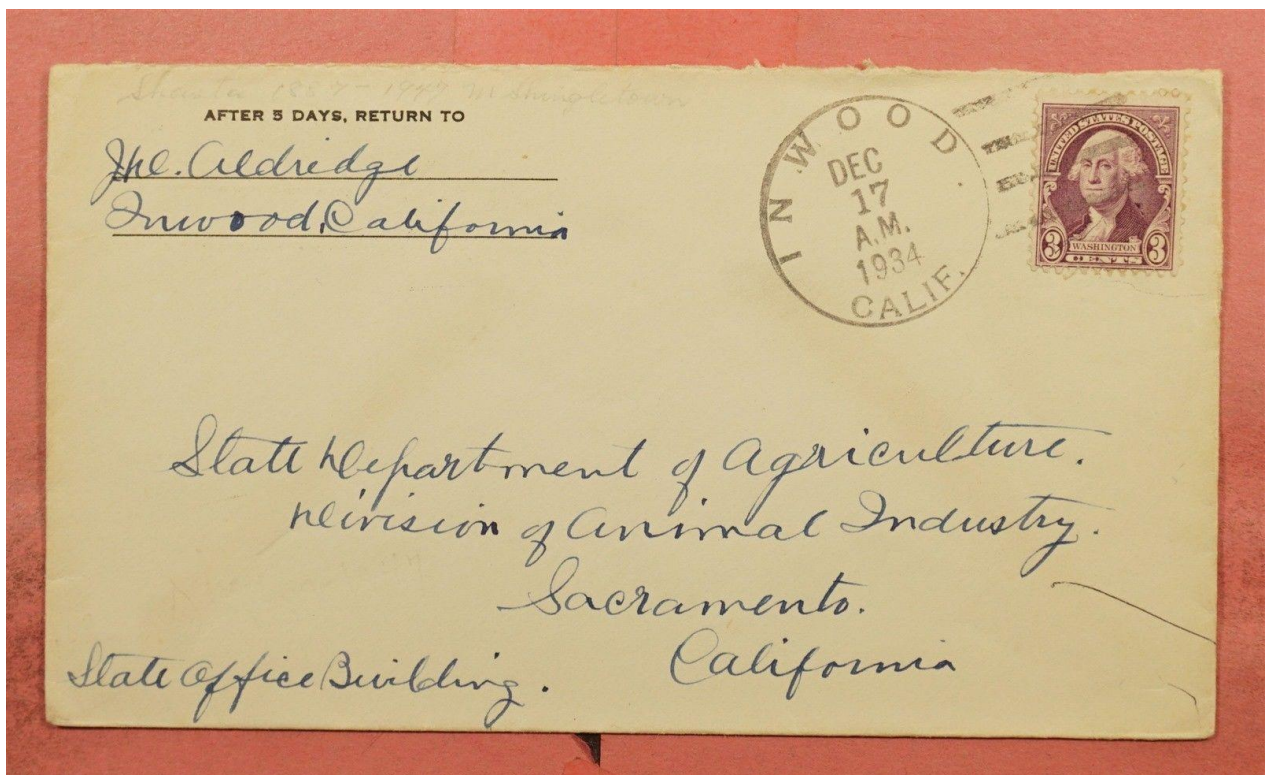 Shasta 1887-1947 M Shingletown
AFTER 5 DAYS, RETURN TO
Aldridge
Inwood, California
INWOOD
DEC
17
A.M.
1934
CALIF.
UNITED STATES POSTAGE
3 WASHINGTON 3
CENTS
State Department of Agriculture.
Division of Animal Industry.
Sacramento.
California
State Office Building.